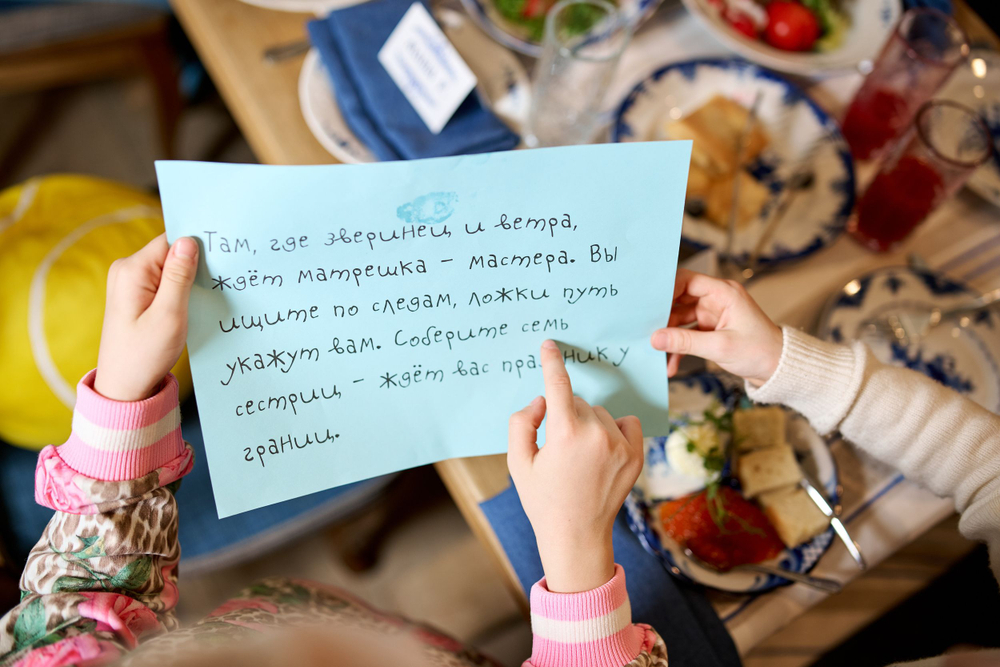 Там, где зверинец и ветра,
ждёт матрешка – мастера. Вы
ищите по следам, ложки путь
укажут вам. Соберите семь
сестриц – ждёт вас у
границ.